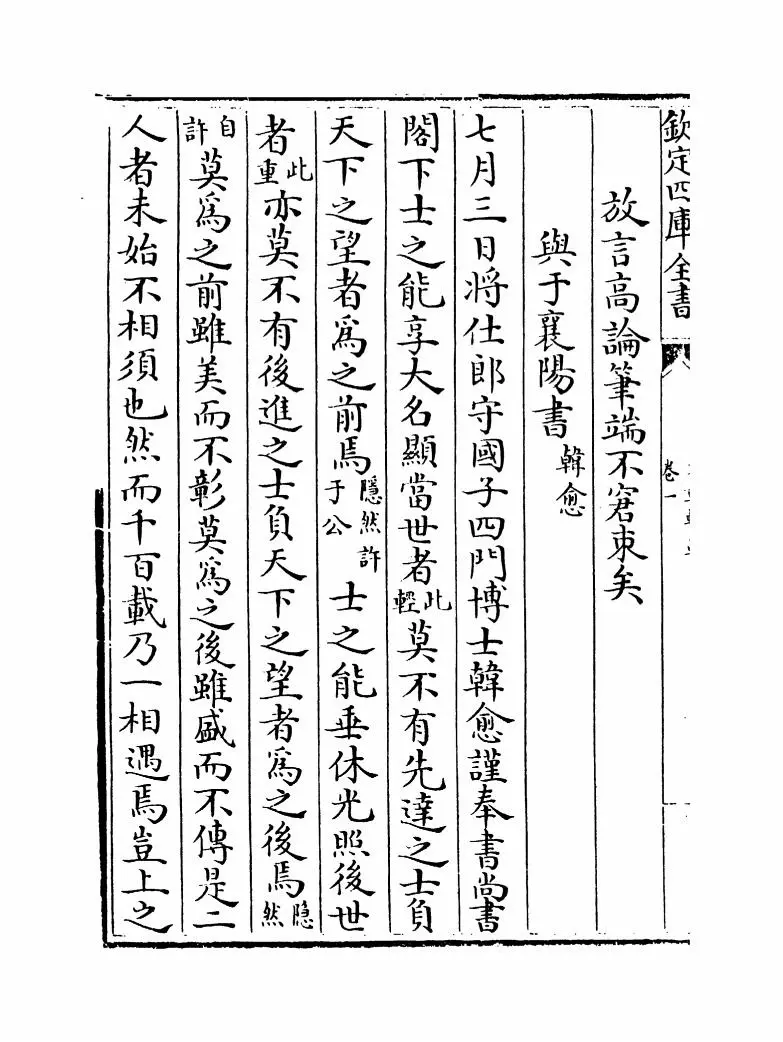 欽定四庫全書
卷一
放言高論筆端不窘束矣
與于襄陽書 韓愈
七月三日將仕郎守國子四門博士韓愈謹奉書尚書
閣下士之能享大名顯當世者此輕莫不有先達之士負
天下之望者爲之前焉隱然許于公士之能垂休光照後世
者此重亦莫不有後進之士負天下之望者爲之後焉隠然
自許莫爲之前雖美而不彰莫爲之後雖盛而不傳是二
人者未始不相須也然而千百載乃一相遇焉豈上之